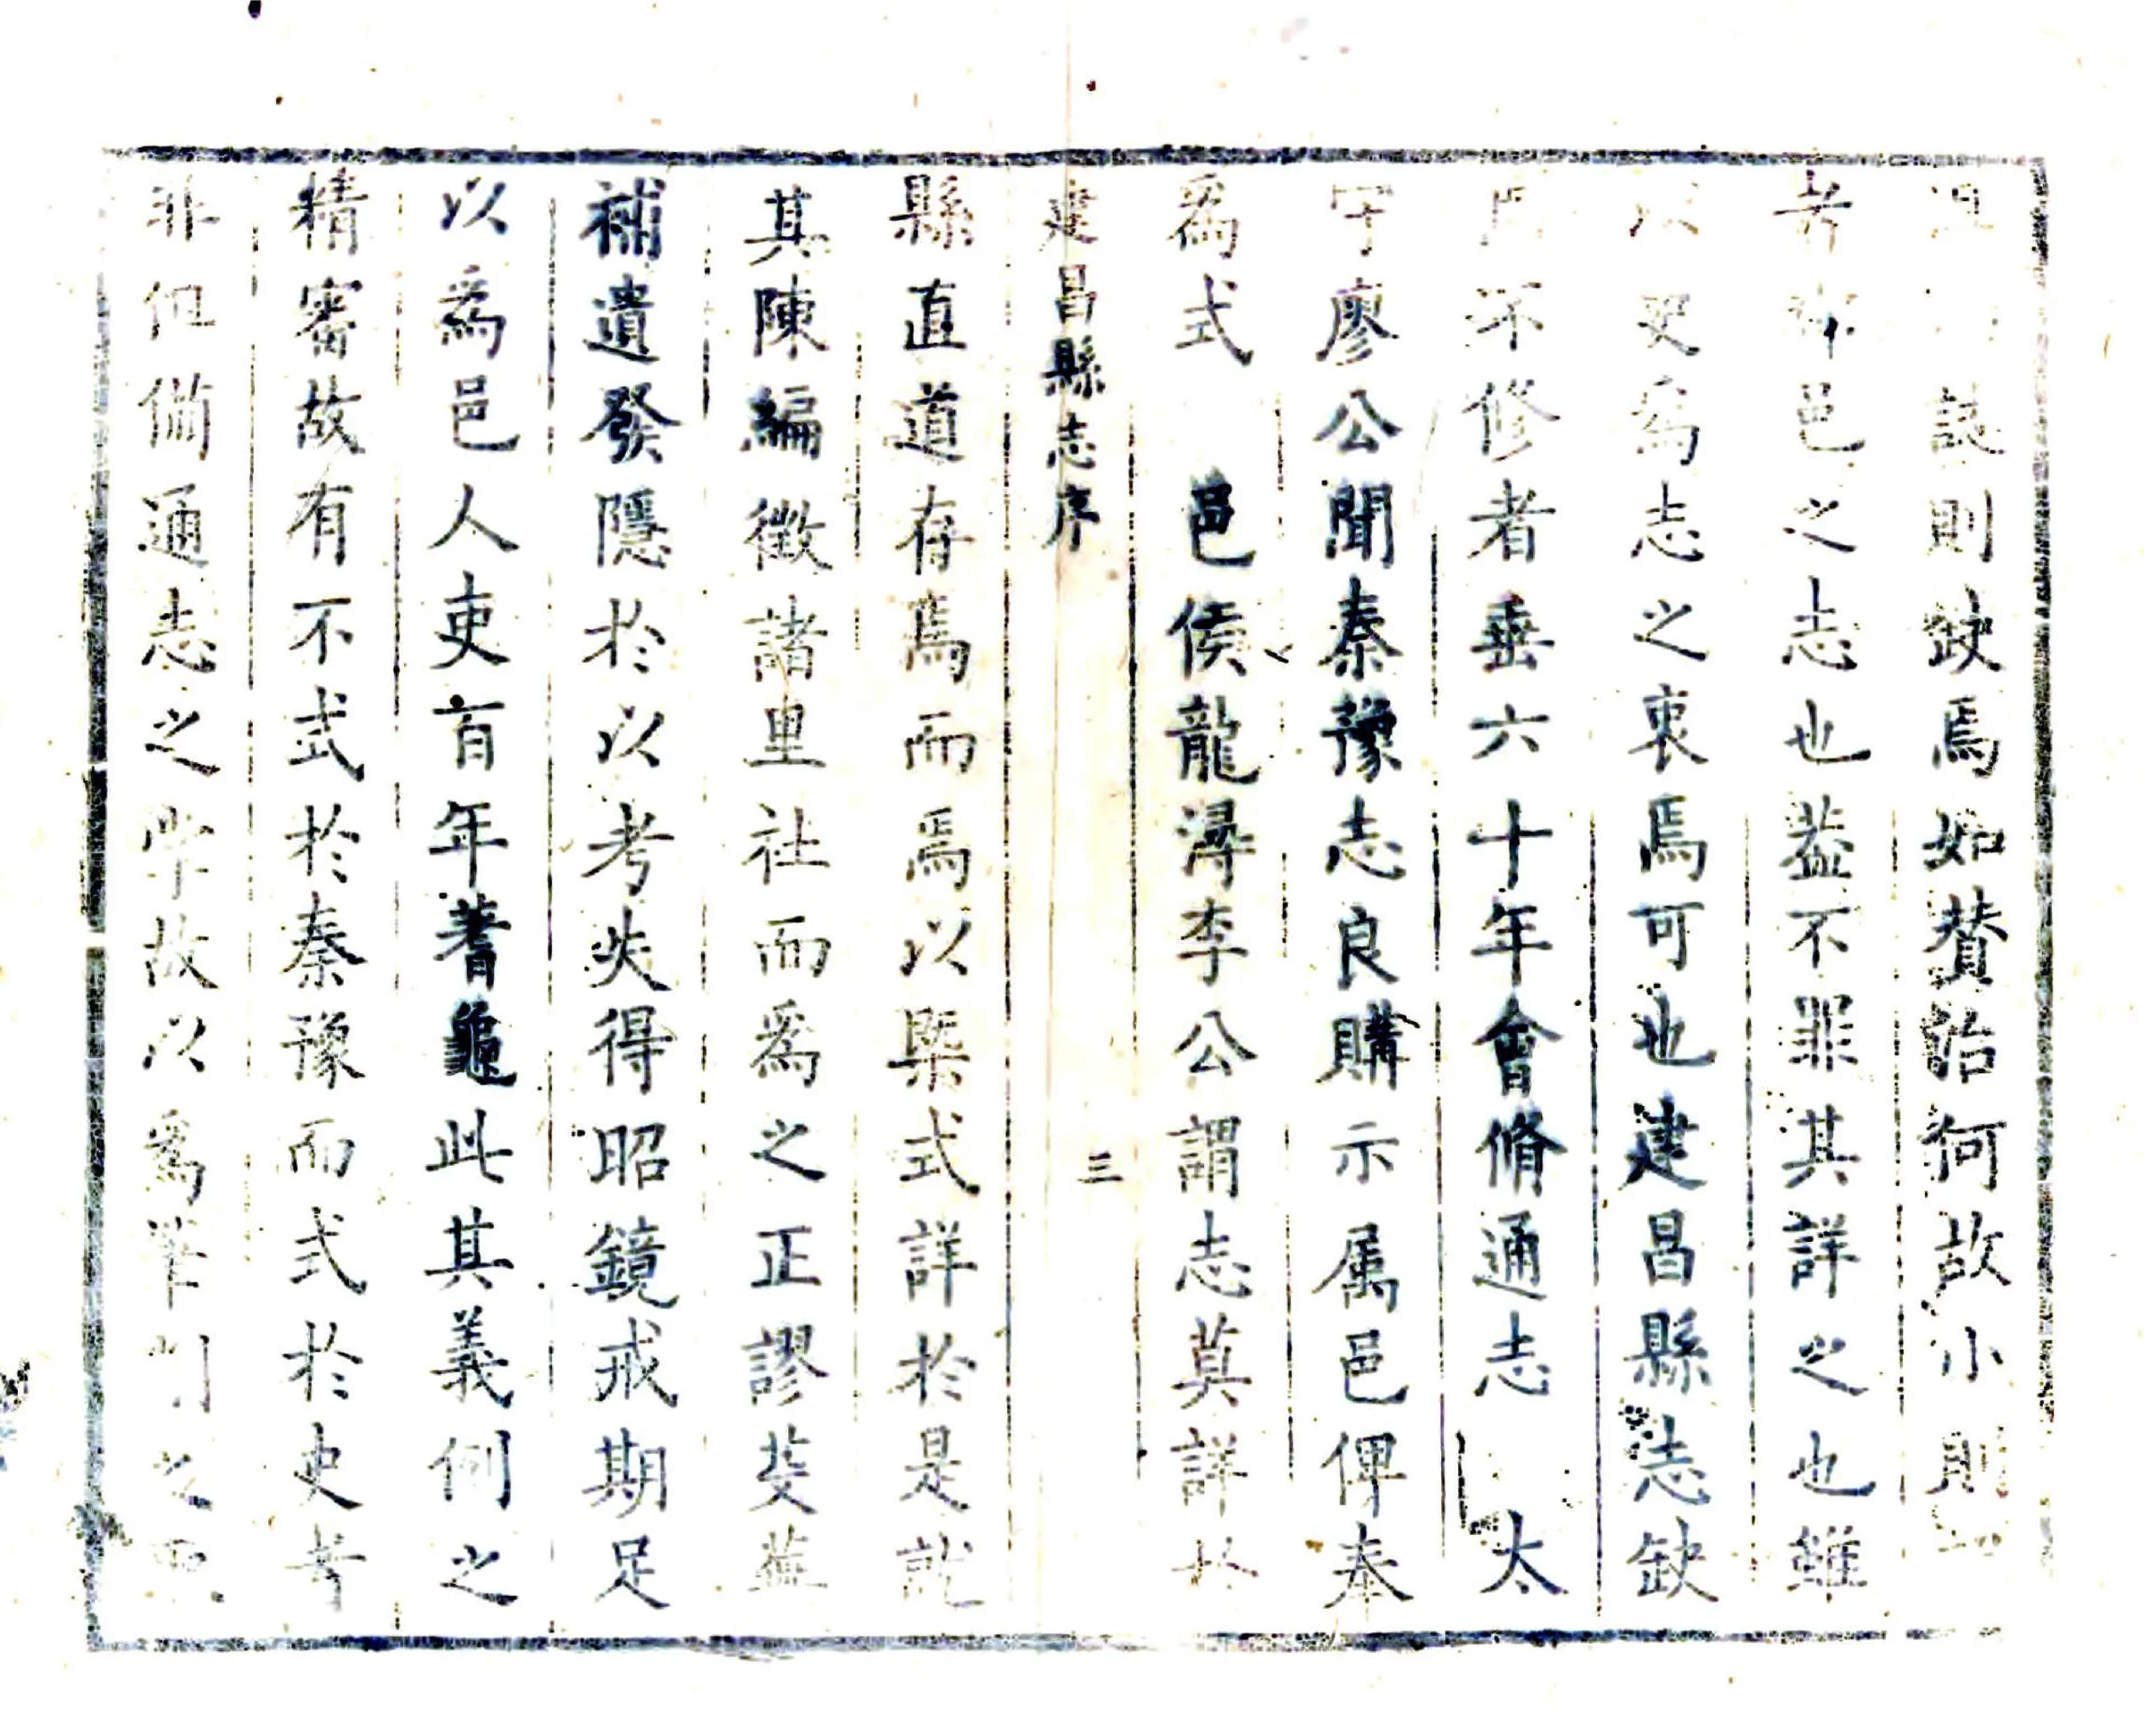 誌則缺焉如賛治何故小則
邑之志也葢不罪其詳之也雖
以史爲志之衷焉可也建昌縣志缺
不修者垂六十年會脩通志 太
守廖公聞秦豫志良購示属邑俾奉
爲式 邑侯龍潯李公謂志莫詳於
建昌縣志序 三
縣直道存焉而焉以槩式詳於是就
其陳編徵諸里社而爲之正謬芟蕪
補遺發隱於以考失得昭鏡戒期足
以爲邑人吏百年蓍龜此其義例之
精審故有不式於秦豫而式於史者
非但備通志之學故以爲筆削之